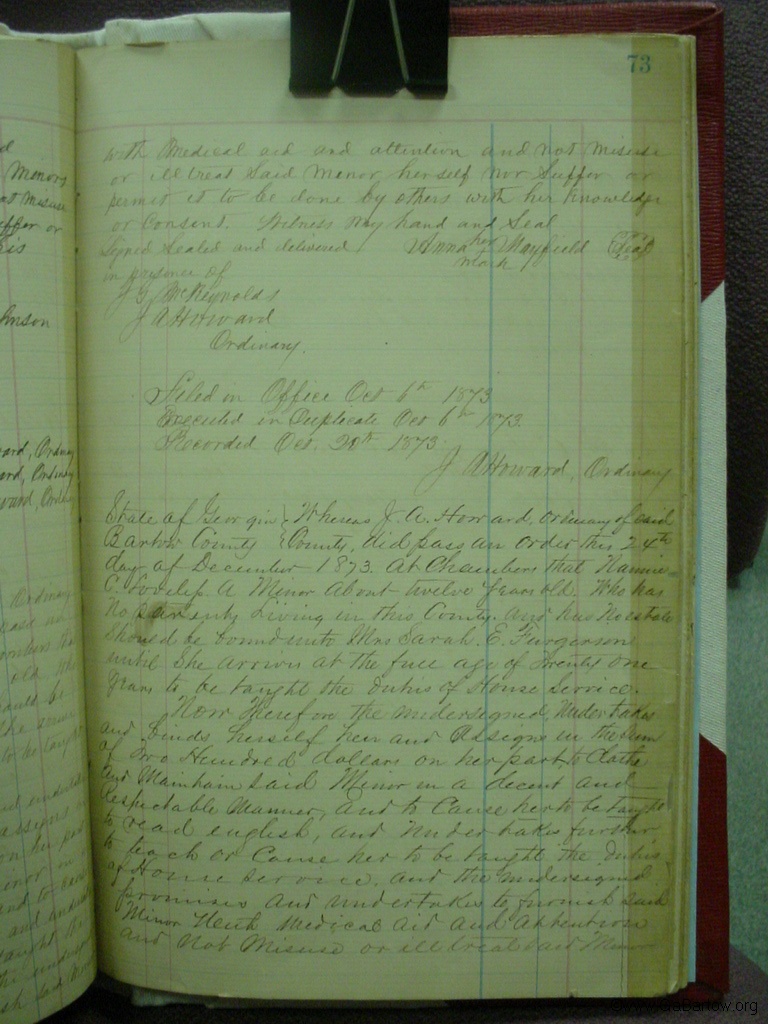 73
with Medical aid and attention and not misuse
or illtreat Said Minor herself nor Suffer or
permit it to be done by others with her Knowledge
or Consent. Witness my hand and Seal
Signed Sealed and delivered Anna her Mayfield Seal
in presence of mark
J G McReynolds
J A Howard
Ordinary.
Filed in Office Oct 6th 1873
Executed in Duplicate Oct 6th 1873.
Recorded Oct. 20th 1873.
J A Howard, Ordinary
State of Georgia } Whereas J. A. Howard, Ordinary of said
Bartow County } County, did pass an order this 24th
day of December 1873. At Chambers that Nannie
C. A Minor About twelve years old. Who has
no parents Living in this County. And has No estate
Should be bound unto Mrs Sarah. E. Furgerson
until She arrives at the full age of twenty one
years to be taught the duties of House Service.
Now Therefore the undersigned undertakes
and binds herself heir and Assigns in the Sum
of Two Hundred dollars on her part to Clothe
And Maintain Said Minor in a decent and
Respectable Manner, and to Cause her to be taught
to read english, and undertakes further
to teach or Cause her to be taught the duties
of House Service. and the undersigned
promises and undertakes to furnish Said
Minor With Medical Aid and Attention
and Not Misuse or ill treat Said Minor
Minors
misuse
suffer or
his
Johnson
Howard, Ordinary
Howard, Ordinary
Howard, Ordinary
Ordinary
old. Who
to be taught
GaBartow.org